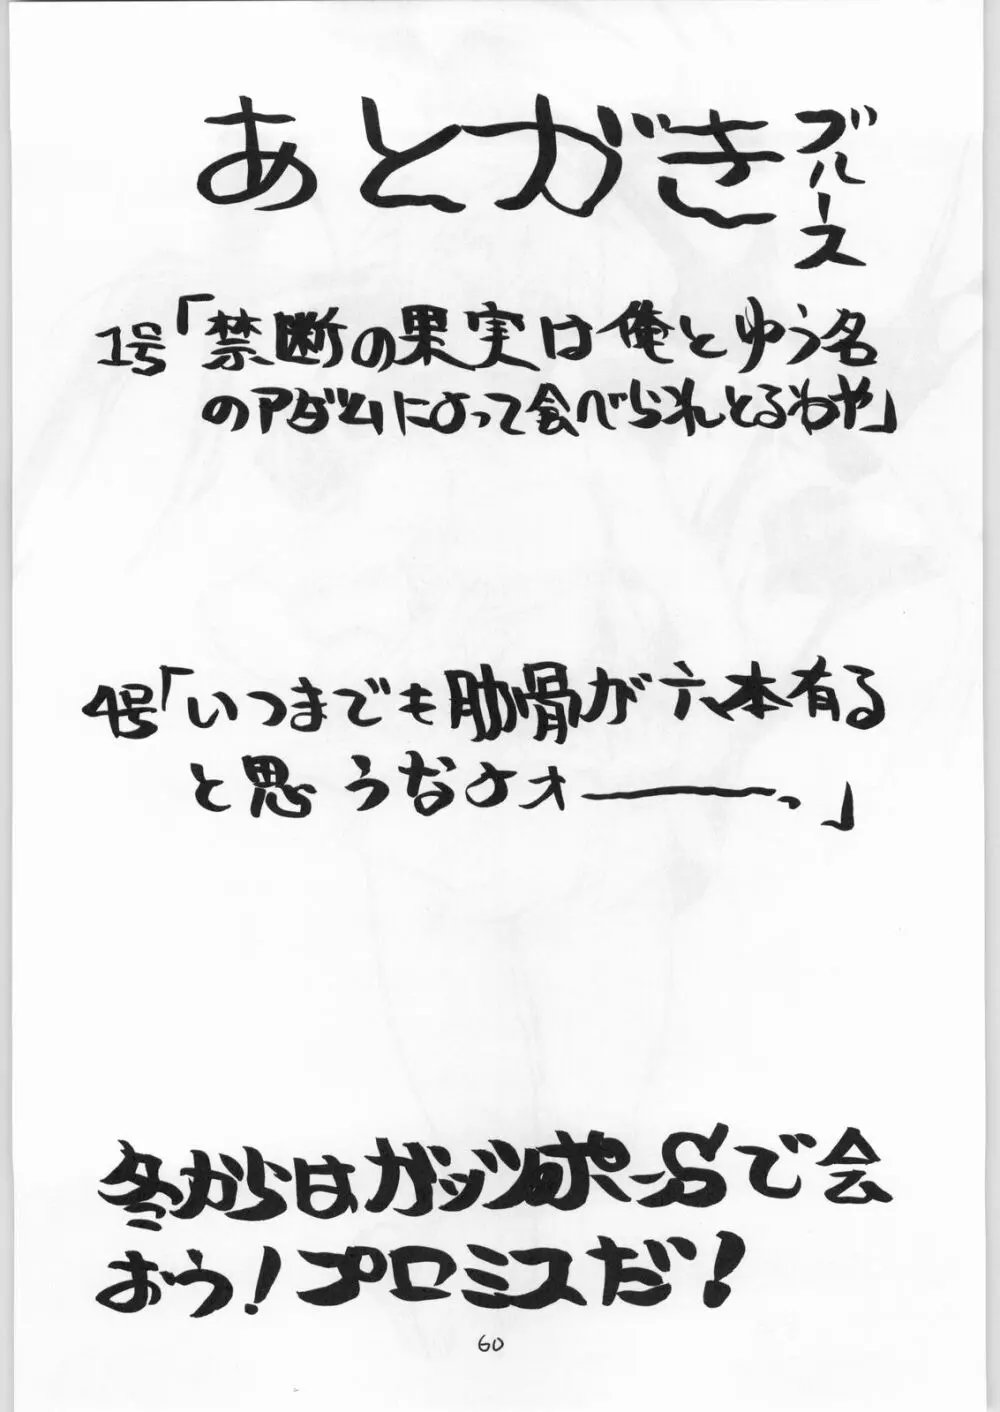 あとがき
ブルース
1号「禁断の果実は俺とゆう名
のアダムによって会べられとるわや」
4号「いつまでも肋骨が六本有る
と思うなよォ――っ」
冬からはガッツのポーSで会
おう!プロミスだ!
60